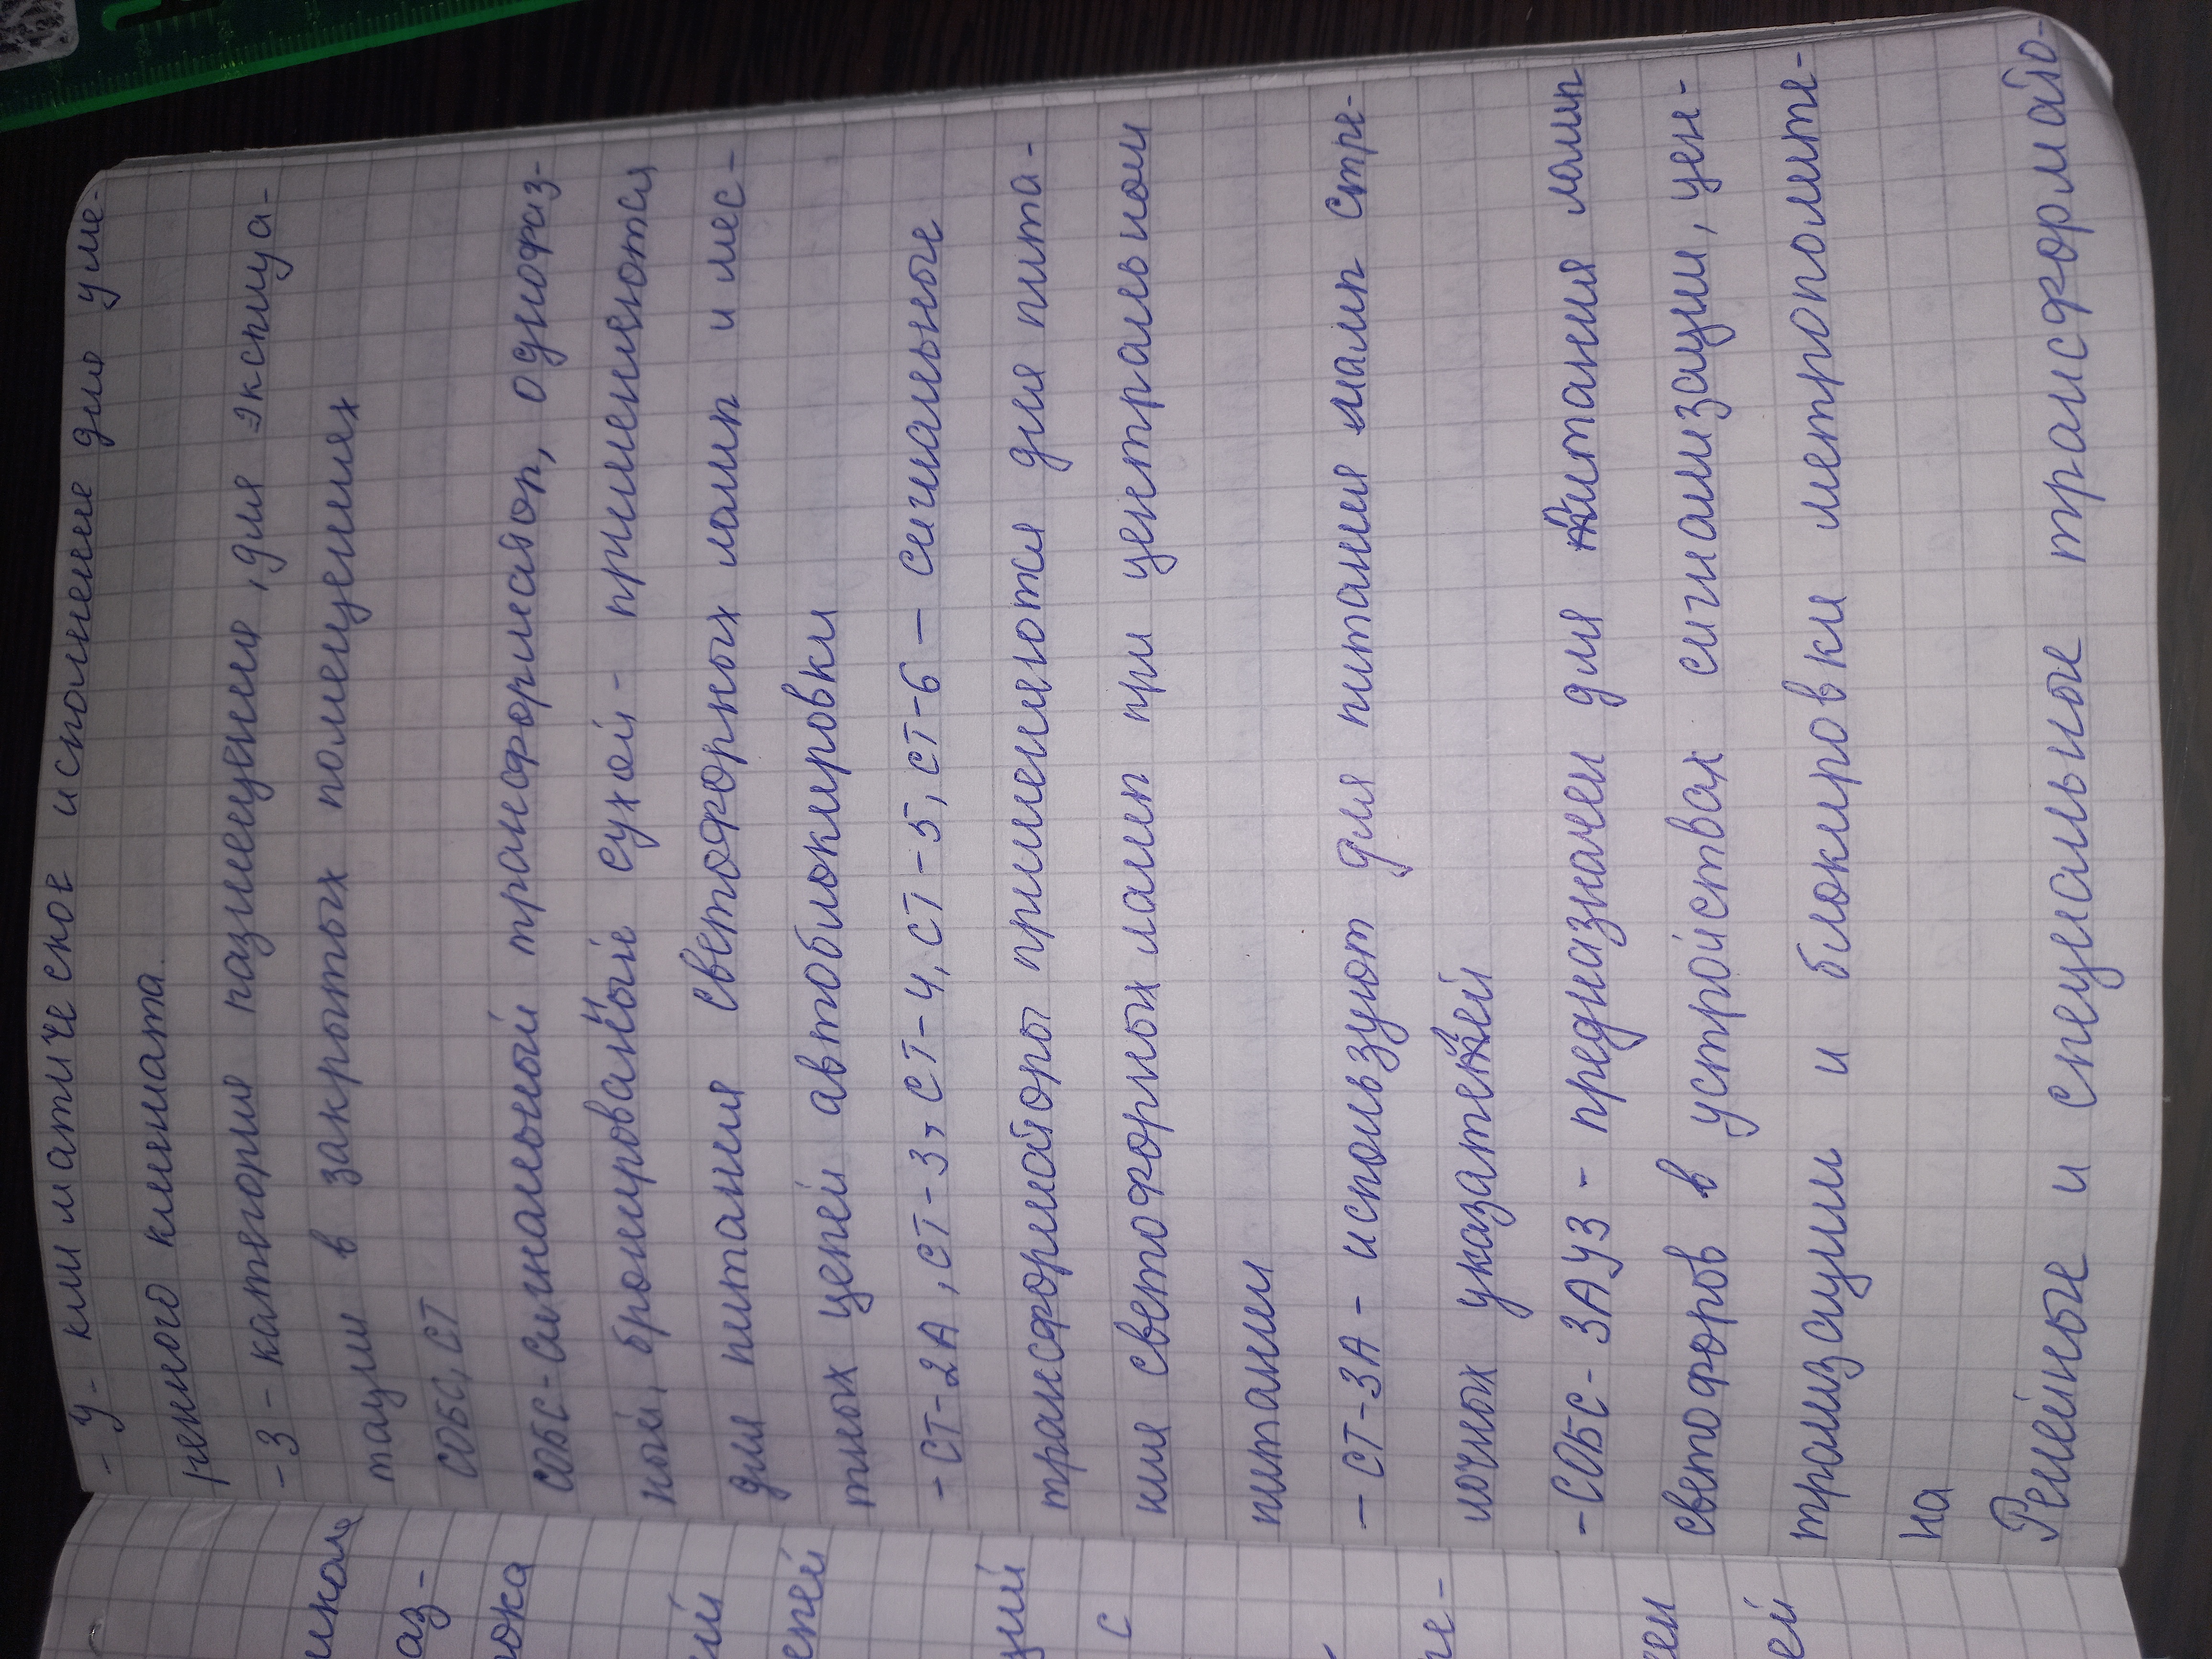 - У - климатическое исполнение для уме-
ренного климата.
- 3 - категория размещения, для эксплуа-
тации в закрытых помещениях
СОБС, СТ
СОБС - Сигнальный трансформатор, однофаз-
ный, бронированные сухой - применяются
для питания светофорных ламп и мес-
тных цепей автоблокировки
- СТ-2А, СТ-3, СТ-4, СТ-5, СТ-6 - сигнальные
трансформаторы применяются для пита-
ния светофорных ламп при центральном
питании
- СТ-3А - используют для питания ламп стре-
лочных указателей
- СОБС-3АУ3 - предназначен для питания ламп
светофоров в устройствах сигнализации, цен-
трализации и блокировки метрополите-
на
Релейные и специальные трансформато-
аз-
ока
ий
епей
ций
с
ей